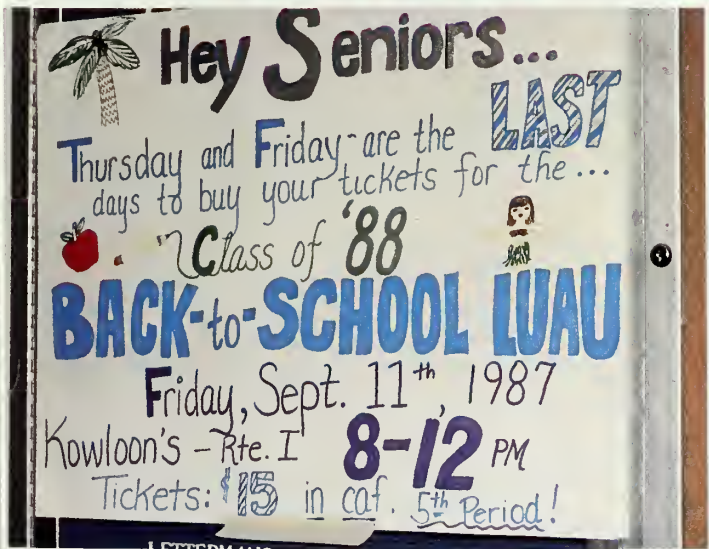 Hey Seniors...
Thursday and Friday-are the LAST
days to buy your tickets for the...
"Class of '88
BACK-to-SCHOOL LUAU
Friday, Sept. 11th, 1987
Kowloon's - Rte. I 8-12 PM
Tickets: $15 in caf. 5th Period!